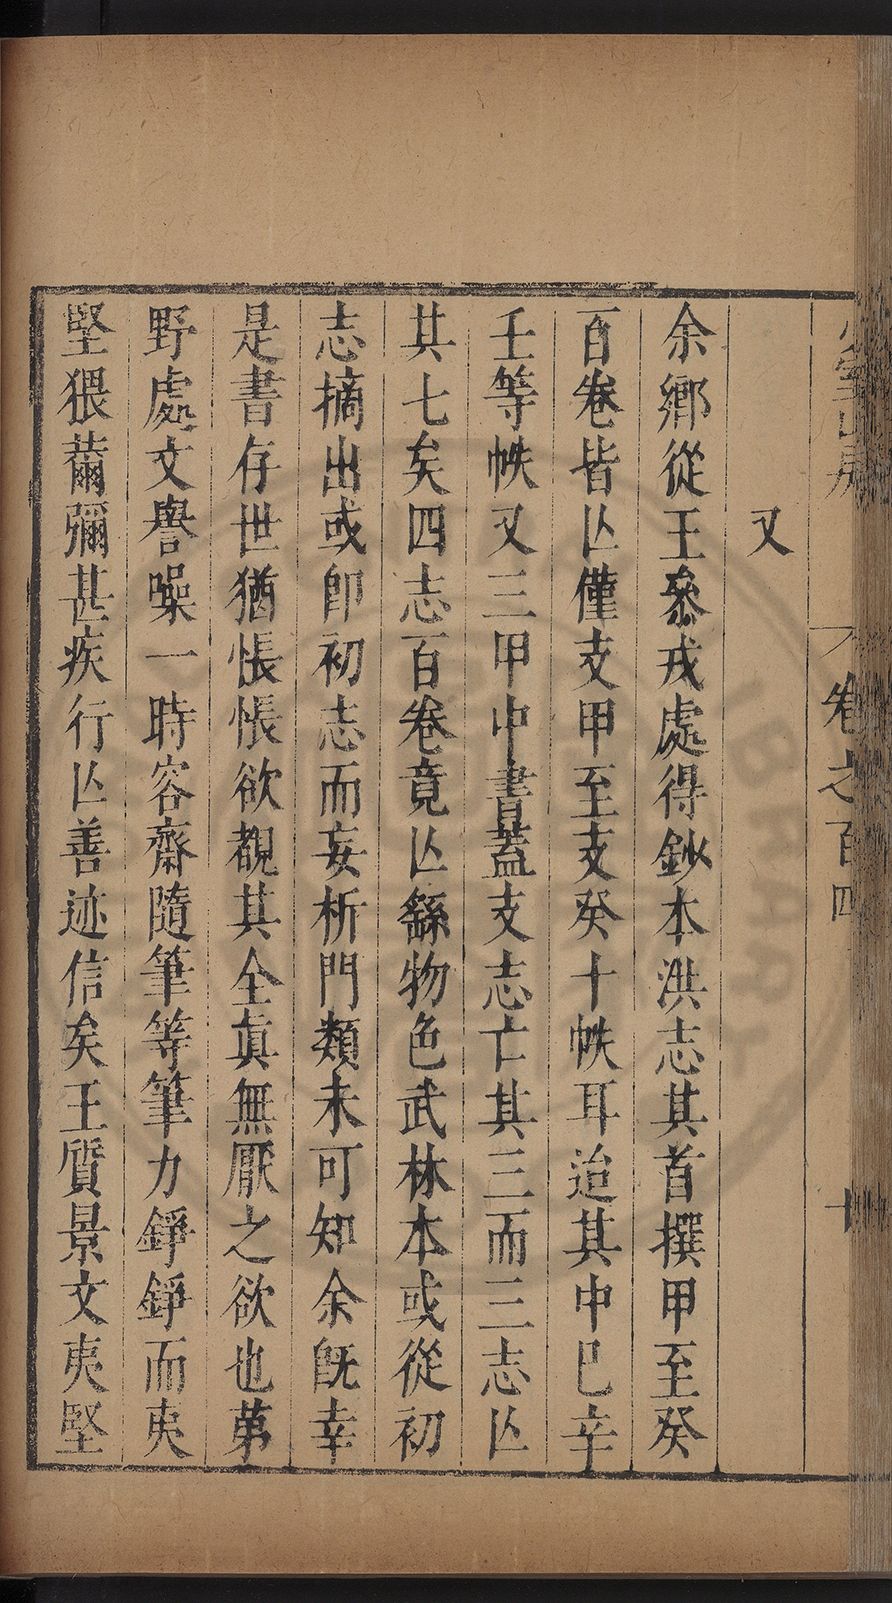 卷之百四
又
余鄉從王參戎處得鈔本洪志其首撰甲至癸
百卷皆亾僅支甲至支癸十帙耳迨其中巳辛
壬等帙又三甲中書蓋支志亡其三而三志亾
其七矣四志百卷竟亾繇物色武林本或從初
志摘出或卽初志而妄析門類未可知余旣幸
是書存世猶悵悵欲覩其全眞無厭之欲也第
野處文譽噪一時容齋隨筆等筆力錚錚而夷
堅猥薾彌甚疾行亾善迹信矣王質景文夷堅